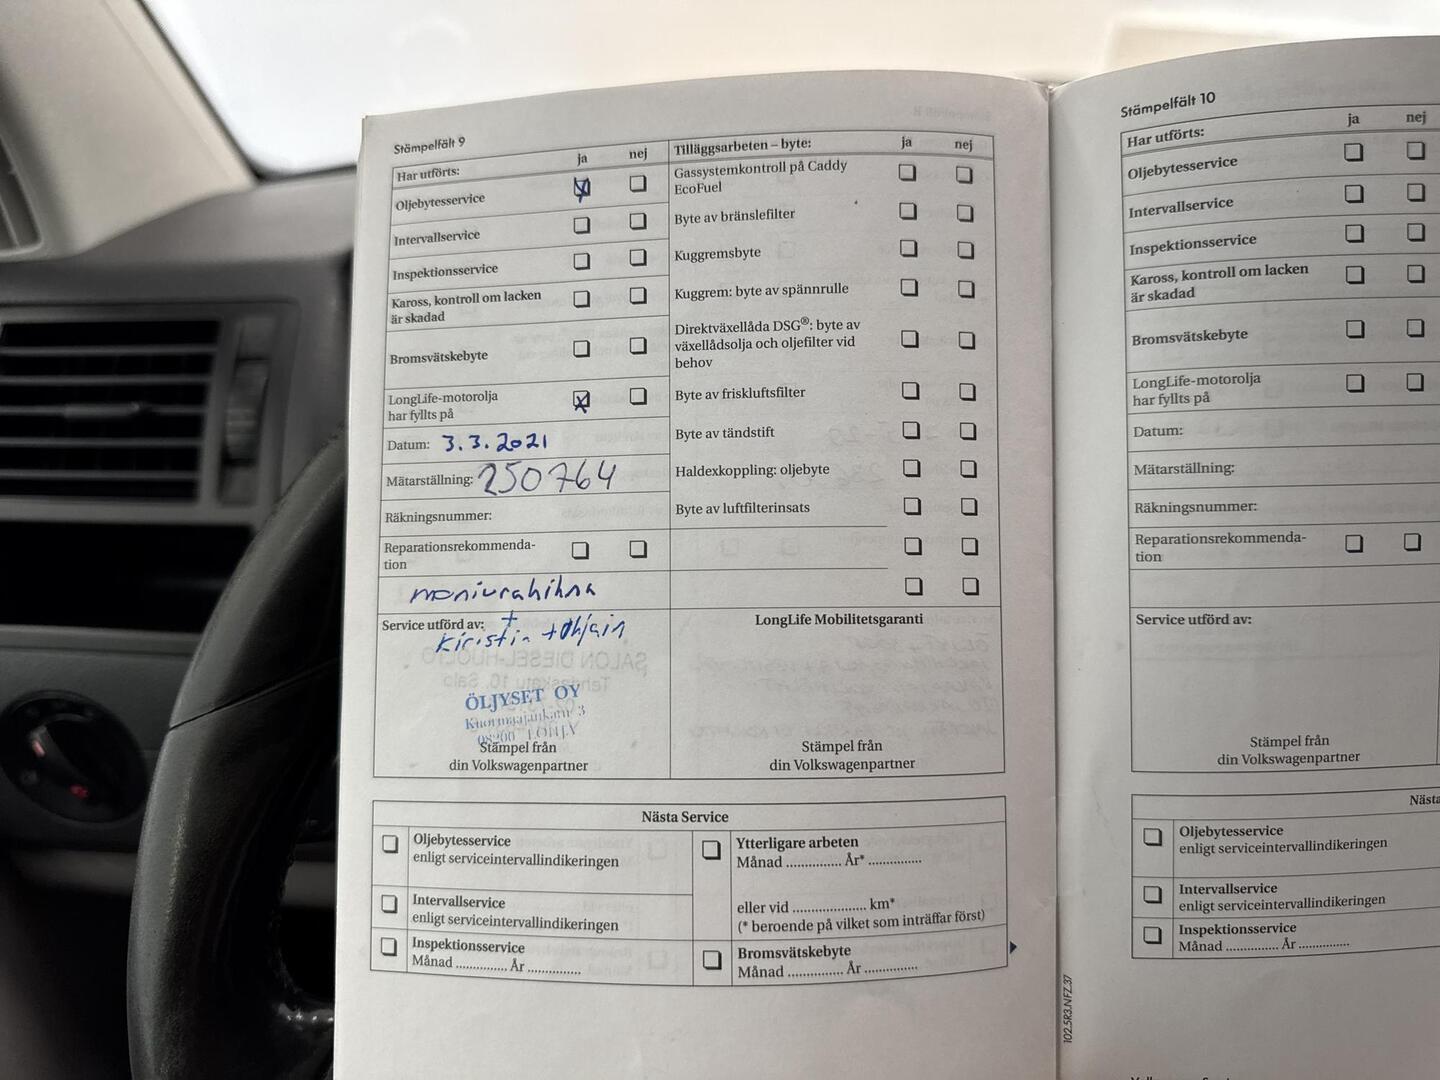 Stämpelfält 9
Har utförts: ja nej
Oljebytesservice
Intervallservice
Inspektionsservice
Kaross, kontroll om lacken
är skadad
Bromsvätskebyte
LongLife-motorolja
har fyllts på
Datum: 3.3.2021
Mätarställning: 250764
Räkningsnummer:
Reparationsrekommenda-
tion
moniurahihna
+
Service utförd av: Kiristin + Ohjain
ÖLJYSET OY
3
08200 LOHJA
Stämpel från
din Volkswagenpartner
Tilläggsarbeten – byte: ja nej
Gassystemkontroll på Caddy
EcoFuel
Byte av bränslefilter
Kuggremsbyte
Kuggrem: byte av spännrulle
Direktväxellåda DSG®: byte av
växellådsolja och oljefilter vid
behov
Byte av friskluftsfilter
Byte av tändstift
Haldexkoppling: oljebyte
Byte av luftfilterinsats
LongLife Mobilitetsgaranti
Stämpel från
din Volkswagenpartner
Nästa Service
Oljebytesservice
enligt serviceintervallindikeringen
Intervallservice
enligt serviceintervallindikeringen
Inspektionsservice
Månad ............... År ...............
Ytterligare arbeten
Månad ............... År* ...............
eller vid .................... km*
(* beroende på vilket som inträffar först)
Bromsvätskebyte
Månad ............... År ...............
102.5R3.NFZ.37
Stämpelfält 10
Har utförts: ja nej
Oljebytesservice
Intervallservice
Inspektionsservice
Kaross, kontroll om lacken
är skadad
Bromsvätskebyte
LongLife-motorolja
har fyllts på
Datum:
Mätarställning:
Räkningsnummer:
Reparationsrekommenda-
tion
Service utförd av:
Stämpel från
din Volkswagenpartner
Nästa
Oljebytesservice
enligt serviceintervallindikeringen
Intervallservice
enligt serviceintervallindikeringen
Inspektionsservice
Månad ............... År ...............